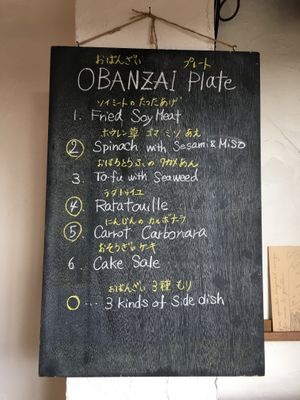 おばんざい プレート
OBANZAI Plate
ソイミートのたつたあげ
1. Fried Soy Meat
ホウレン草 ゴマ ミソ あえ
② Spinach with Sesami & MiSo
おぼろとうふの ワカメあん
3. To-fu with Seaweed
ラタトゥイユ
④ Ratatouille
にんじんの カルボナーラ
⑤ Carrot Carbonara
おそうざい ケーキ
6. Cake Sale
おばんざい 3種 もり
○… 3 kinds of Side dish